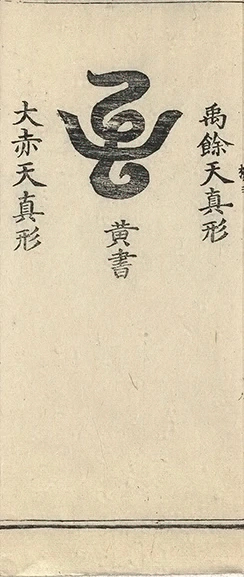 禹餘天真形
黃書
大赤天真形